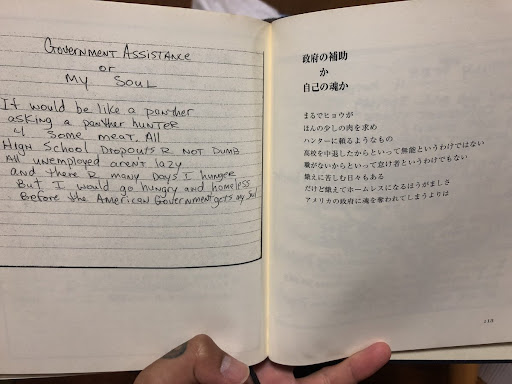 Government Assistance
or
My Soul
It would be like a panther
asking a panther hunter
4 some meat. All
High School Dropouts R not Dumb
All unemployed aren't lazy
and there R many Days I hunger
But I would go hungry and homeless
Before the American Government gets my Soul
政府の補助
か
自己の魂か
まるでヒョウが
ほんの少しの肉を求め
ハンターに頼るようなもの
高校を中退したからといって無能というわけではない
職がないからといって怠け者というわけでもない
飢えに苦しむ日々もある
だけど飢えてホームレスになるほうがましさ
アメリカの政府に魂を奪われてしまうよりは
113